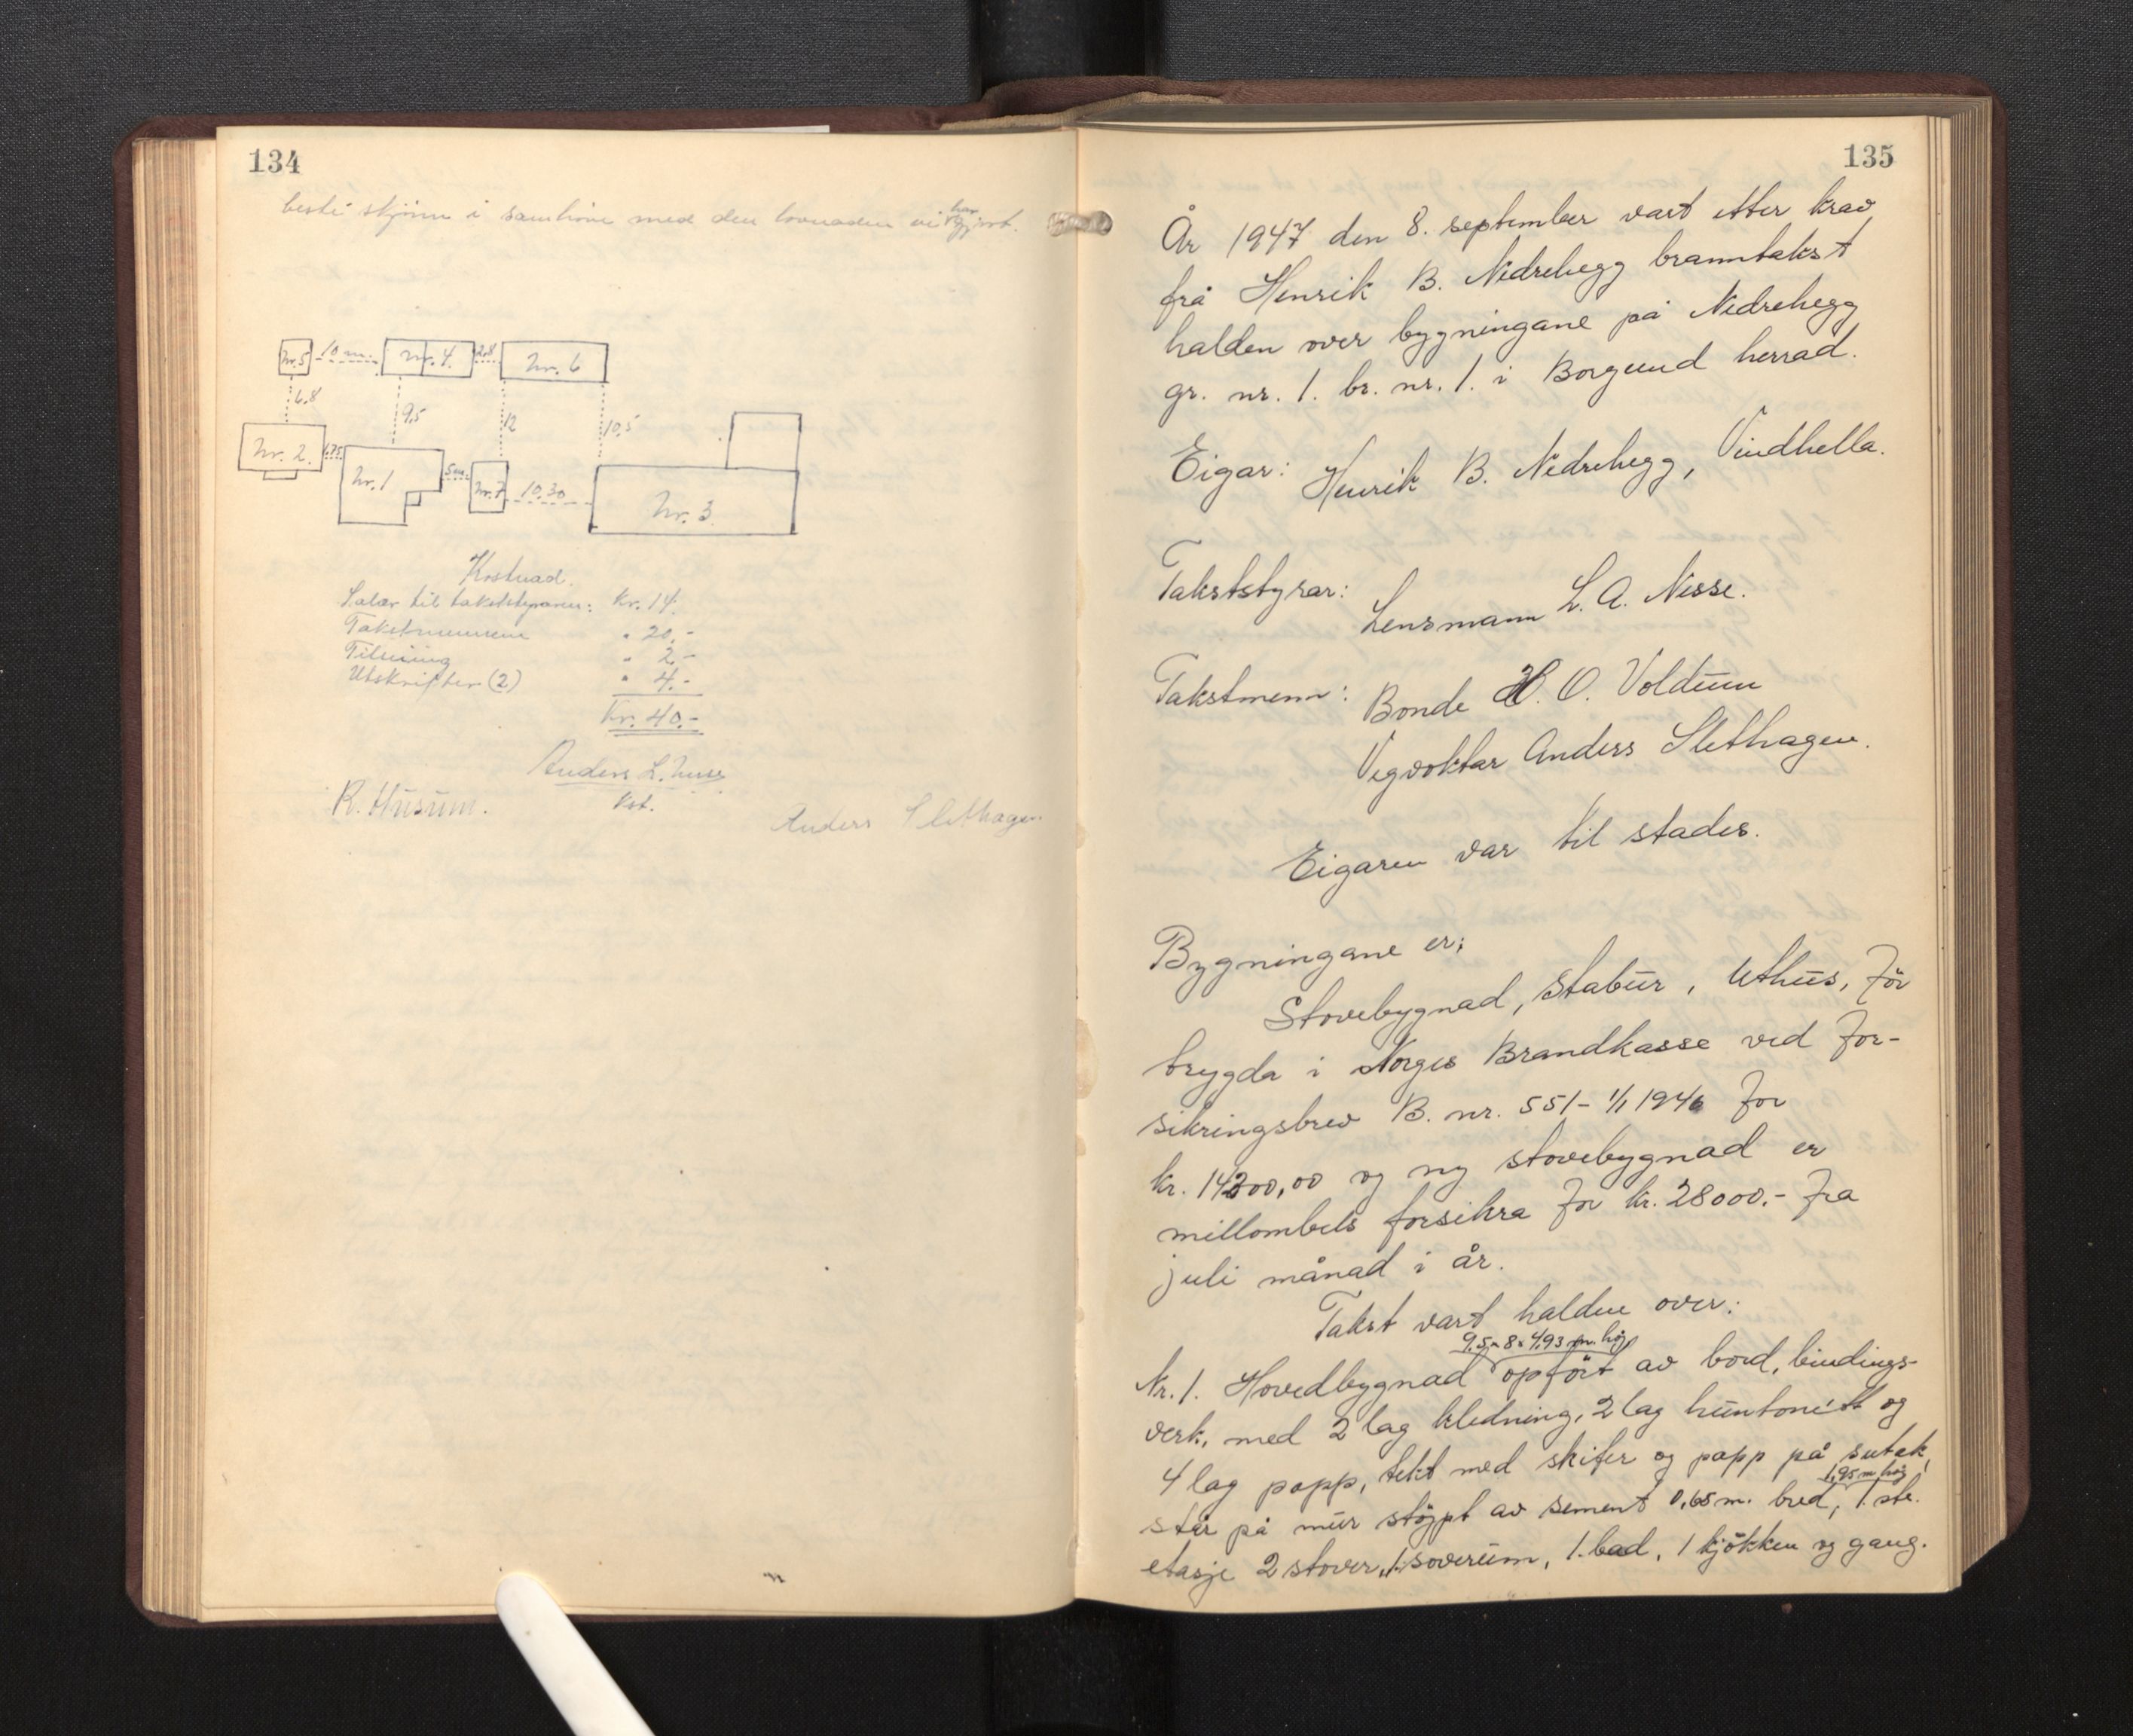 134
beste skjönn i samhöve med den lovnaden vi har gjort.
Nr. 5 10 m. Nr. 4. 2.8 Nr. 6
6.8 9,5 12 10,5
Nr. 2. 1.75 Nr. 1 5 m. Nr. 7 10.30 Nr. 3.
Kostnad.
Salær til takststyraren: Kr. 14.
Takstmennene " 20.-
Tilseiing " 2.-
Utskrifter (2) " 4.-
Kr. 40.-
Anders L.
Kst.
R. Husum.
Anders Slethagen
135
År 1947 den 8. september vart etter krav
frå Henrik B. Nedrehegg branntakst
halden over bygningane på Nedrehegg
gr. nr. 1. br. nr. 1. i Borgund herrad.
Eigar: Henrik B. Nedrehegg, Vindhella.
Takststyrar: Lensmann L. A. Nesse.
Takstmenn: Bonde H. O. Voldum
Vegvoktar Anders Slethagen.
Eigaren var til stades.
Bygningane er:
Stovebygnad, Stabur, Uthus, för
trygda i Norges Brandkasse ved for-
sikringsbrev B. nr. 551- 1/1 1946 for
kr. 14200,00 og ny stovebygnad er
millombels forsikra for kr. 28000.- fra
juli månad i år.
Takst vart halden over:
9,5 x 8 x 4,93 m. høg
Nr. 1. Hovedbygnad opfört av bord, bindings-
verk, med 2 lag kledning, 2 lag huntonitt og
4 lag papp, tekt med skifer og papp på sutak,
1,95 m høg
står på mur stöypt av sement 0,65 m. bred, 1. ste.
etasje 2 stover, 1. soverum, 1. bad, 1 kjökken og gang.